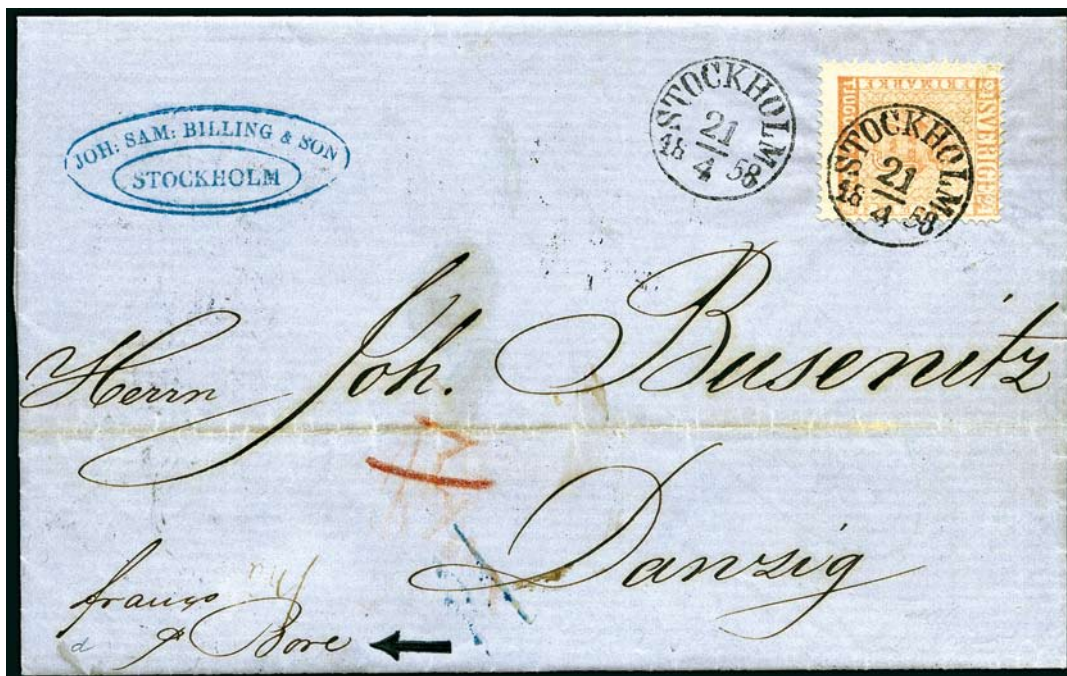 JOH: SAM: BILLING & SON
STOCKHOLM
STOCKHOLM
21
18 4 58
SVERIGE
FRIMARKE
STOCKHOLM
21
18 4 58
Herrn Joh. Busenitz
Danzig
franco
p Bore